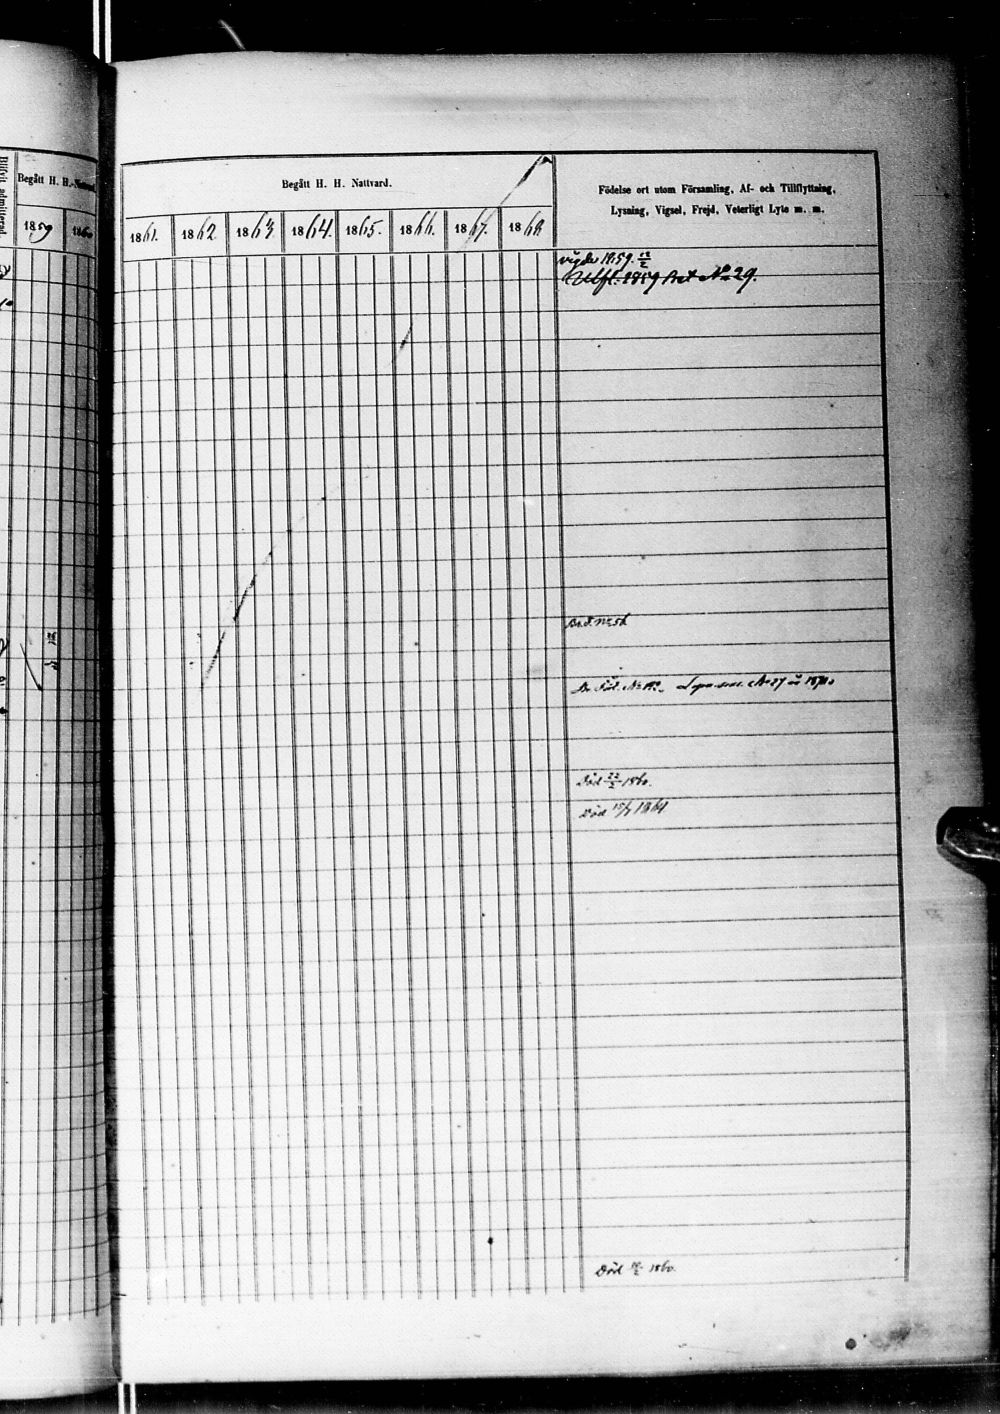 Begått H. H. Nattvard.
1859 1860
Begått H. H. Nattvard.
1861. 1862. 1863. 1864. 1865. 1866. 1867. 1868.
Födelse ort utom Församling, Af- och Tillflyttning,
Lysning, Vigsel, Frejd, Veterligt Lyte m. m.
vigde 1859.
1859 Bet. No 29.
Död 22/2 1860.
Död 1864
Död 1860.